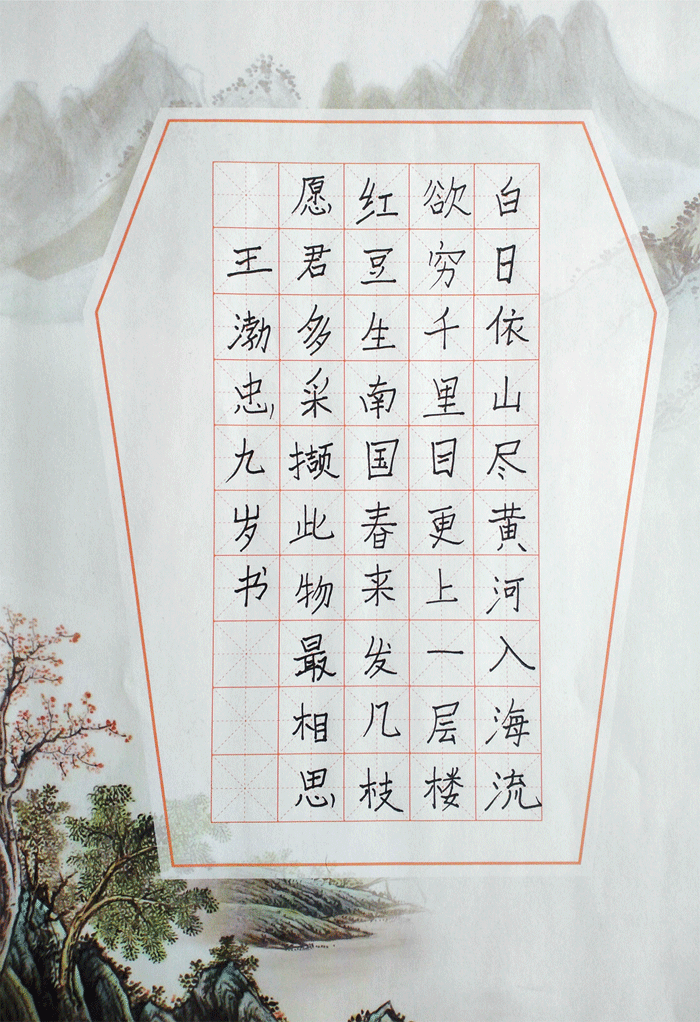 白日依山尽黄河入海流
欲穷千里目更上一层楼
红豆生南国春来发几枝
愿君多采撷此物最相思
王渤忠九岁书